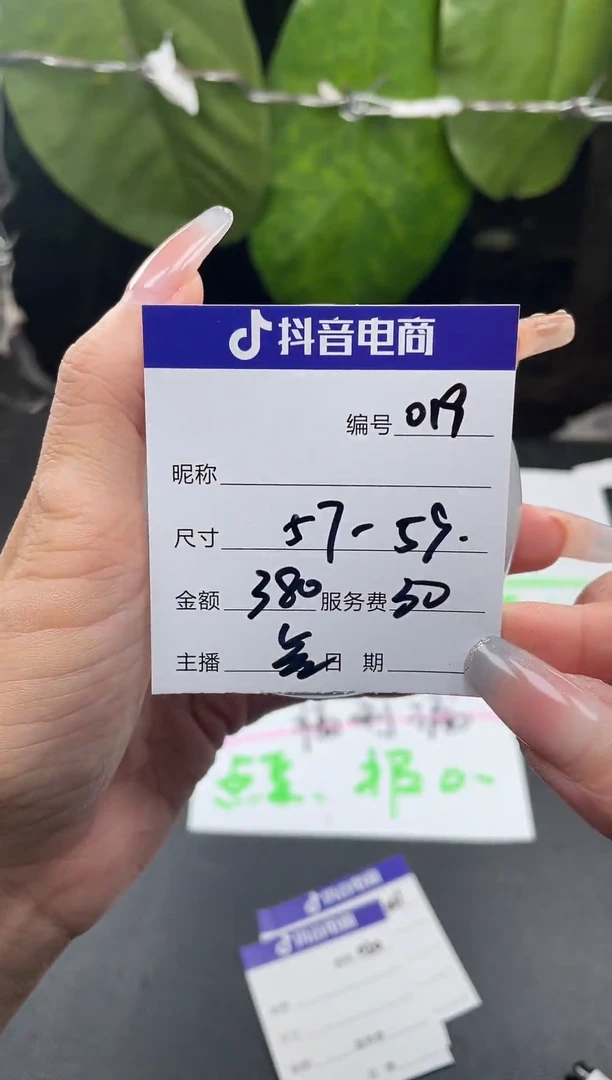 抖音电商
编号 019
昵称
尺寸 57-59.
金额 380 服务费 50
主播 日期
抖音电商
抖音电商